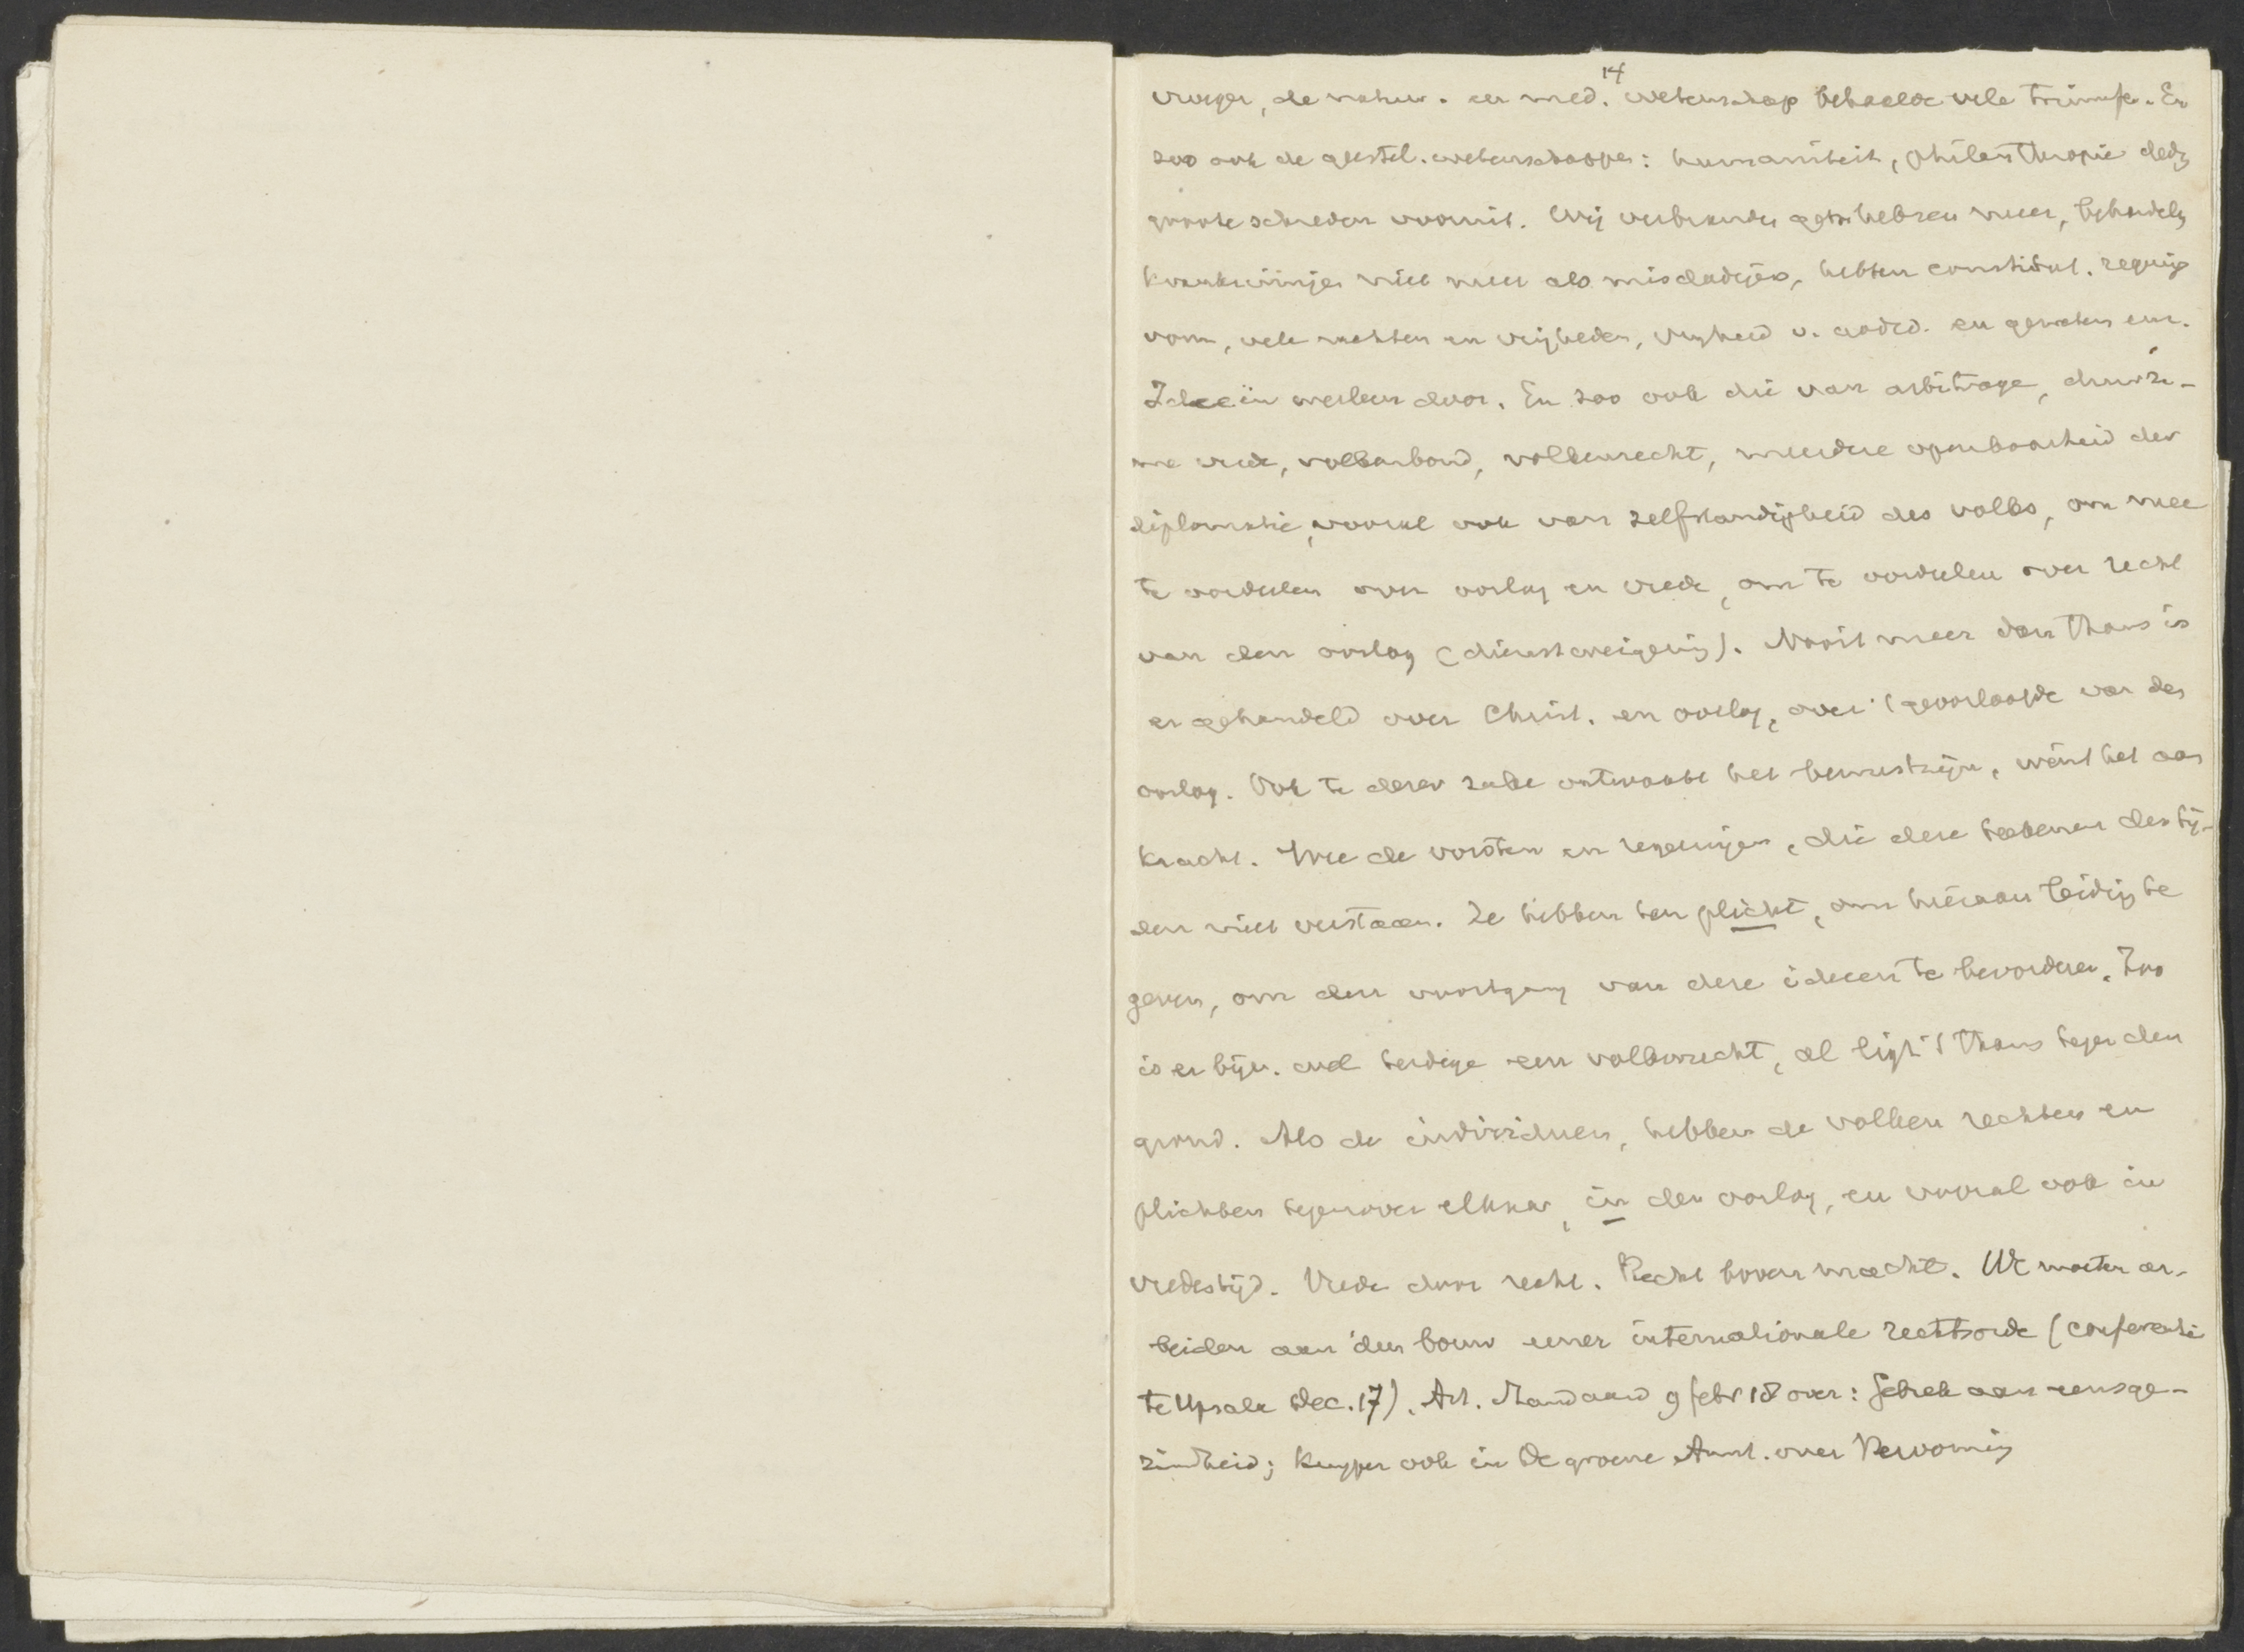 14
vroeger, de natuur. en med. wetenschap behaalde vele triumfen. En
zoo ook de geestel. wetenschappen: humaniteit, philanthropie deden
groote schreden vooruit. Wij verbranden geen heksen meer, behandelen
krankzinnigen niet meer als misdadigers, hebben constitut. regerings
vorm, vele rechten en vrijheden, vrijheid v. godsd. en geweten enz.
Ideeën werken door. En zoo ook die van arbitrage, duurza-
me vrede, volkenbond, volkenrecht, meerdere openbaarheid der
diplomatie, vooral ook van zelfstandigheid des volks, om mee
te oordeelen over oorlog en vrede, om te oordeelen over recht
van den oorlog (dienstweigering). Nooit meer dan thans is
er gehandeld over Christ. en oorlog, over 't geoorloofde van den
oorlog. Ook te dezer zake ontwaakt het bewustzijn, wint het aan
kracht. Wee de vorsten en regeringen, die deze teekenen des tij-
den niet verstaan. Ze hebben ten plicht, om hieraan leiding te
geven, om den voortgang van deze ideeen te bevorderen. Zoo
is er bijv. wel terdege een volkenrecht, al ligt 't thans tegen den
grond. Als de individuen, hebben de volken rechten en
plichten tegenover elkaar, in den oorlog, en vooral ook in
vredestijd. Vrede door recht. Recht boven macht. We moeten ar-
beiden aan den bouw eener internationale rechtsorde (conferentie
te Upsala Dec. 17). Art. Standaard 9 febr 18 over: Gebrek aan eensge-
zindheid; Kuyper ook in De groene Amst. over Hervorming